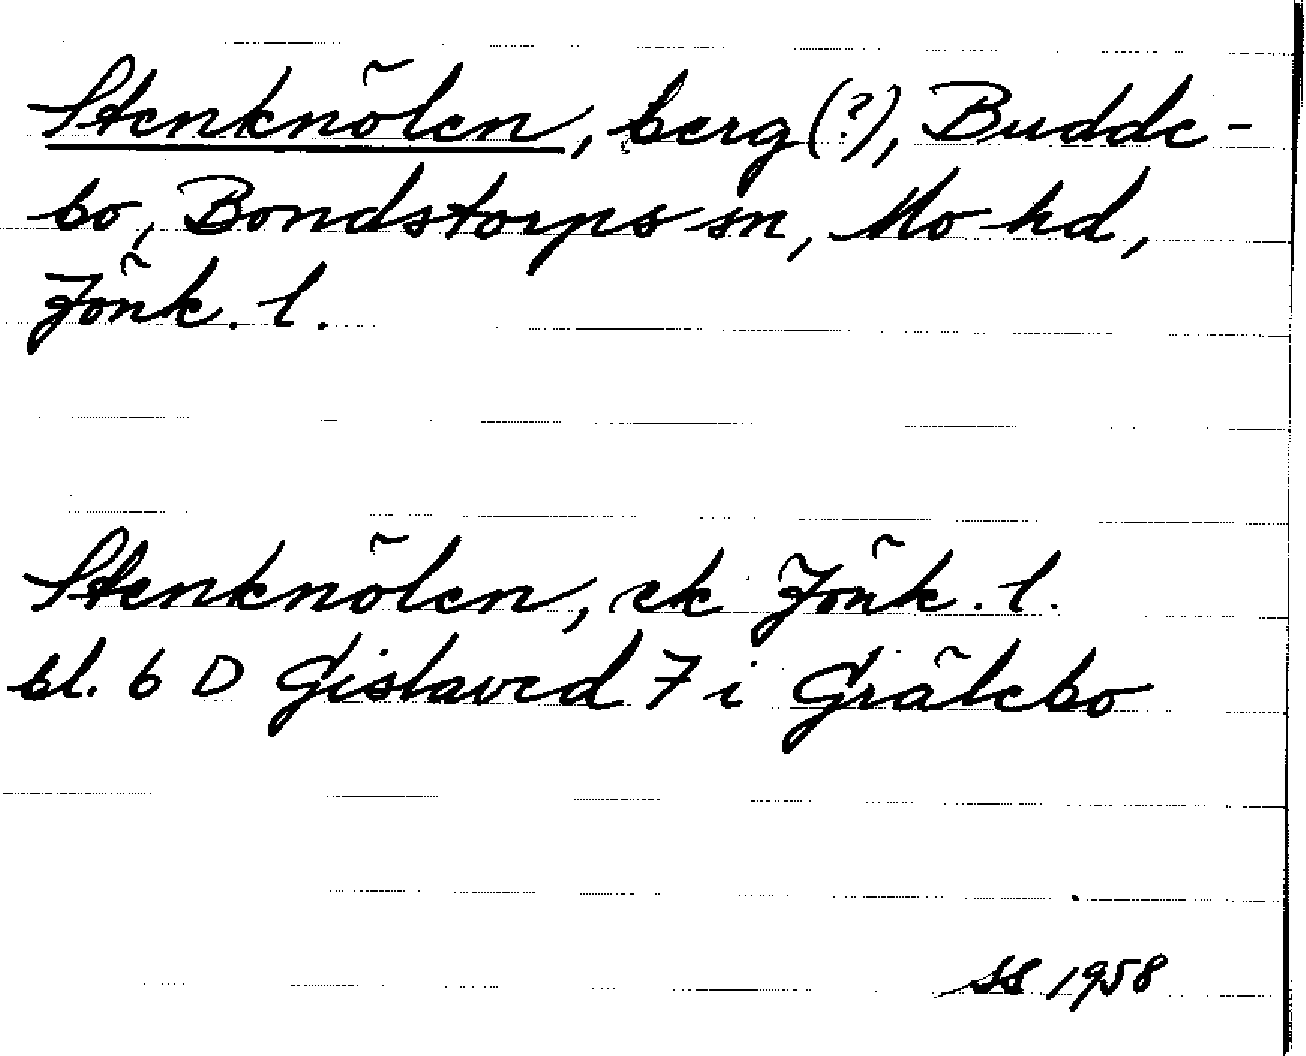 Stenknölen, berg (?), Budde-
bo, Bondstorps sn, Mo hd,
Jönk. l.
Stenknölen, ek Jönk. l.
bl. 6 D Gislaved 7 i Grälebo
SS 1958